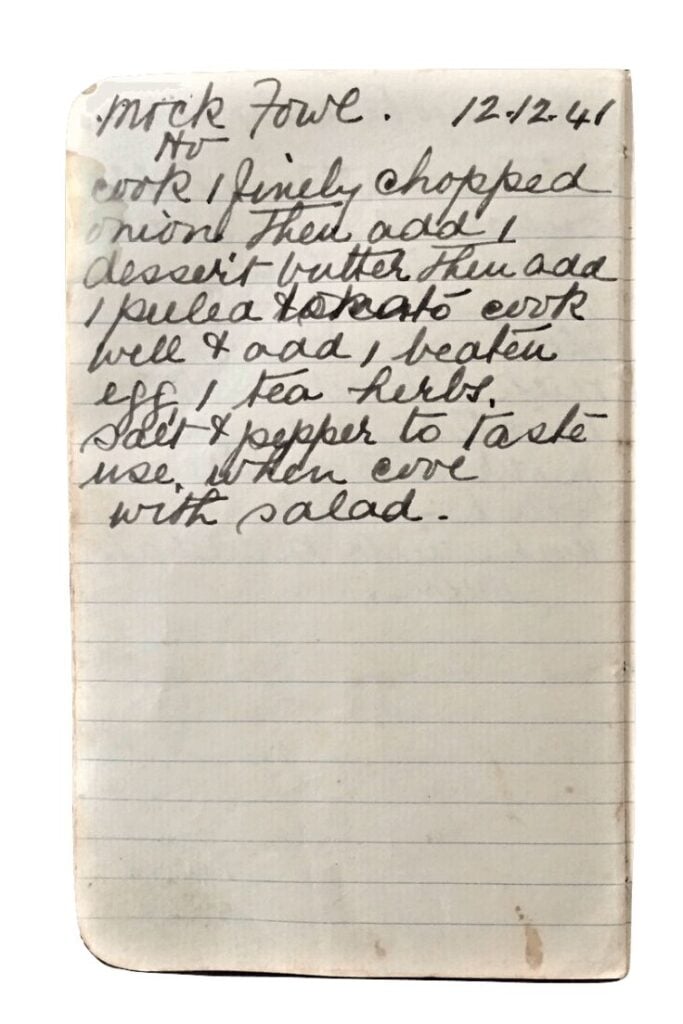 Mock Fowl. 12.12.41
To
cook 1 finely chopped
onion Then add 1
dessert butter Then add
1 peeled tomato cook
well & add 1 beaten
egg, 1 tea herbs.
salt & pepper to taste
use, when cool
with salad.